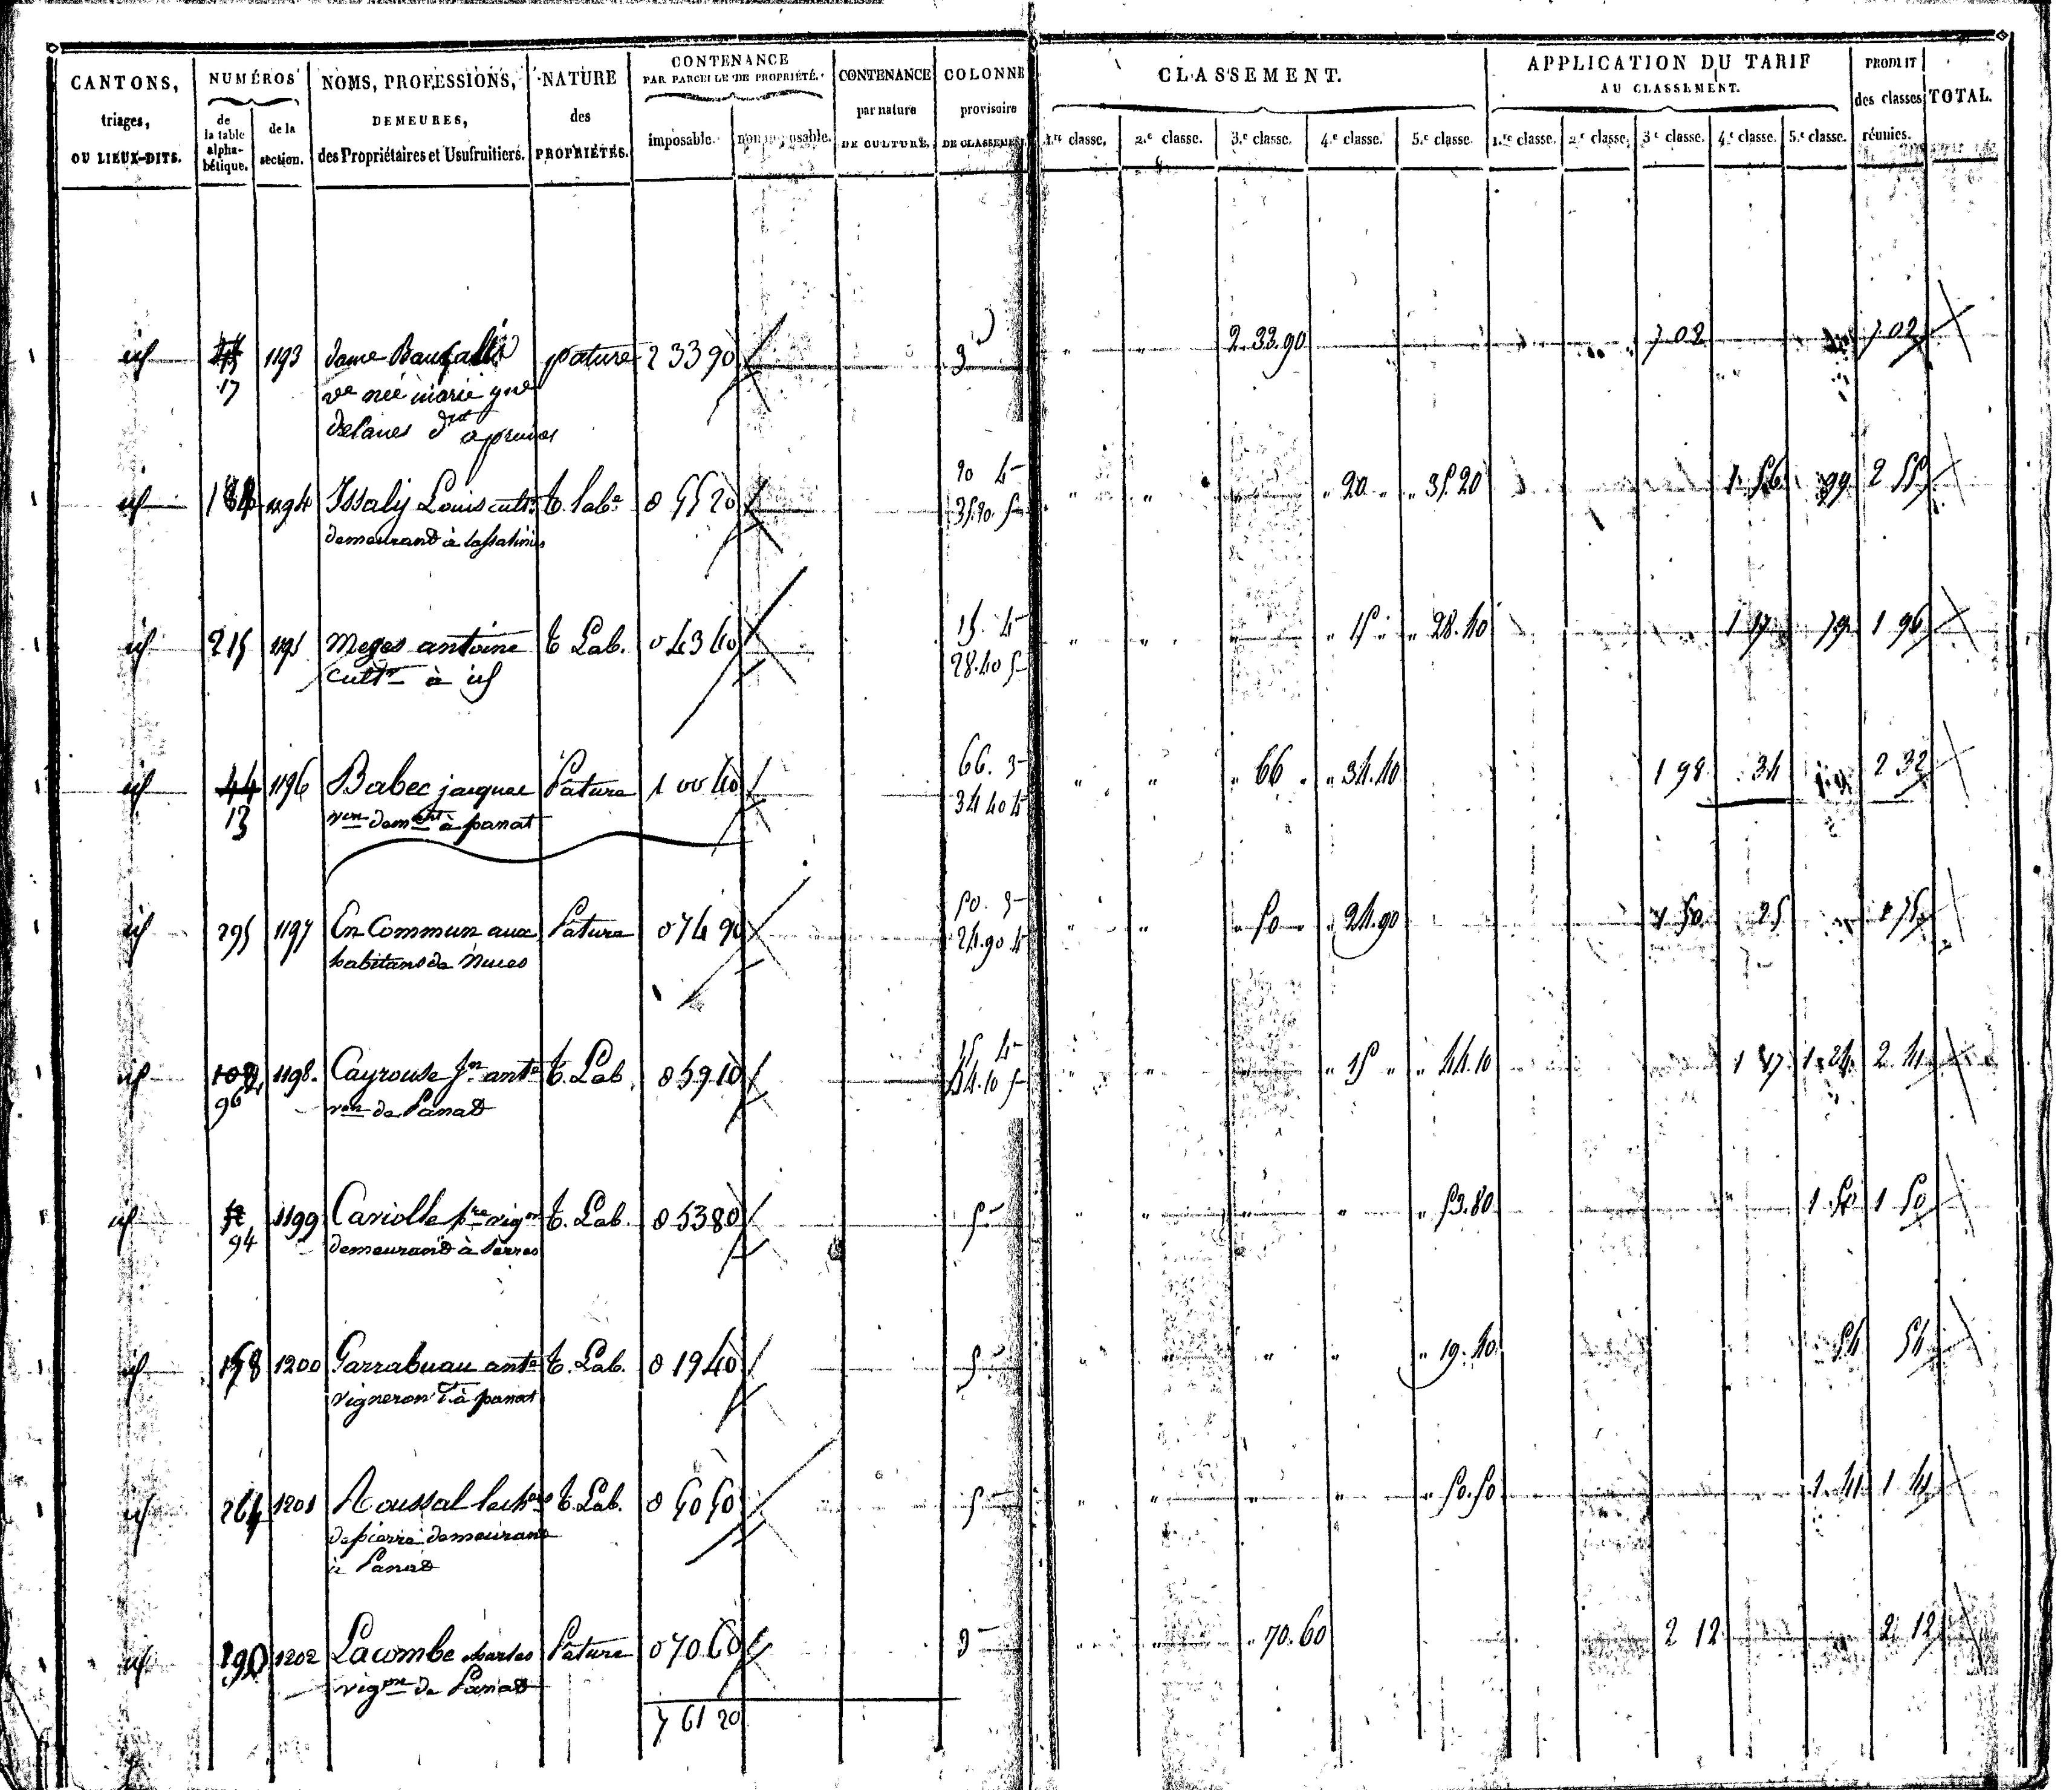 CANTONS, triages, OU LIEUX-DITS.
NUMÉROS de la table alphabétique. de la section.
NOMS, PROFESSIONS, DEMEURES, des Propriétaires et Usufruitiers.
NATURE des PROPRIÉTÉS.
CONTENANCE PAR PARCELLE DE PROPRIÉTÉ. imposable. non imposable.
CONTENANCE par nature DE CULTURE.
COLONNE provisoire DE CLASSEMENT.
CLASSEMENT. 1.re classe. 2.e classe. 3.e classe. 4.e classe. 5.e classe.
APPLICATION DU TARIF AU CLASSEMENT. 1.re classe. 2.e classe. 3.e classe. 4.e classe. 5.e classe.
PRODUIT des classes réunies.
TOTAL.
id 17 1193 dame pature 2 33 90 3 2.33.90 7 02 7 02
ve née marie
id 1194 Issaly Louis cultr t. labe 0 55 20 20 4 " " " 20 " " 35.20 1 56 99 2 55
demeurand à 35.20. 5
id 215 1195 Meges antoine t Lab. 0 43 40 15. 4 " " " 15 " " 28.40 1 17 79 1 96
cultr à id 28.40 5
id 44 1196 Babec jacques Pature 1 00 40 66. 3 " " " 66 " " 34.40 1 98 34 2 32
13 ron demant à panat 34 40 4
id 295 1197 En Commun aux Pature 0 74 90 50. 3 " " " 50 " 24.90 1 50 25 1 75
habitans de Nuces 24.90 4
id 1198. Cayrouse Jn ante t. Lab. 0 59 10 15 4 " " " 15 " " 44.10 1 17 1 24 2 41
96 ron de Panat 44.10 5
id 1199 Cariolle pre vign t. Lab. 0 53 80 5 " " " " " 53.80 1 50 1 50
94 demeurand à Serres
id 158 1200 Garrabuau ante t. Lab. 0 19 40 5 " " " " " 19.40 54 54
vigneron à panat
id 264 1201 Roussal t. Lab. 0 50 50 5 " " " " " 50.50 1.41 1 41
de pierre demeurand
à Panat
id 190 1202 Lacombe charles Pature 0 70 60 3 " " " 70.60 2 12 2 12
vigon de Panat
7 61 20